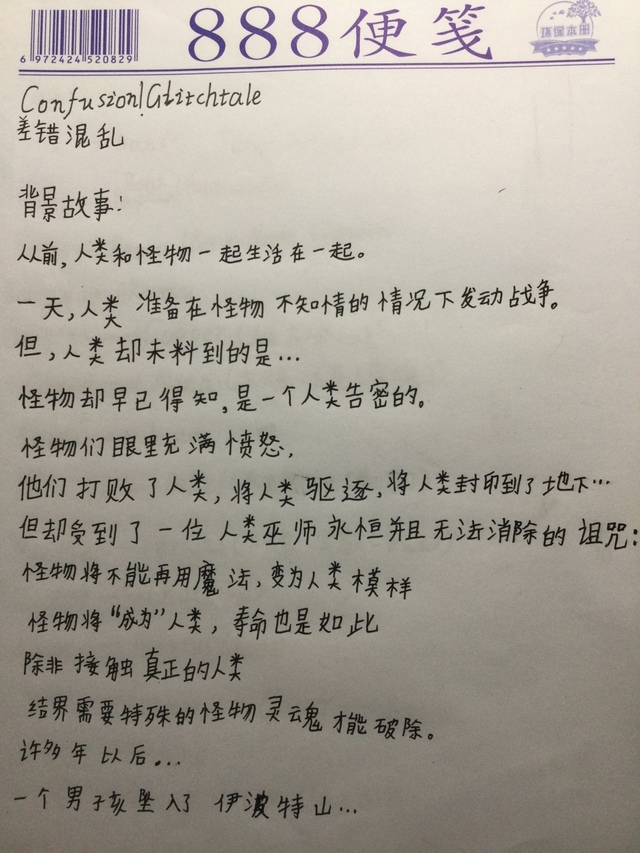 888便笺
环保本册
6 972424 520829
Confusion!Glitchtale
差错混乱
背景故事:
从前,人类和怪物一起生活在一起。
一天,人类 准备在怪物 不知情的 情况下发动战争。
但,人类 却未料到的是...
怪物却早已得知,是一个人类告密的。
怪物们眼里充满愤怒,
他们 打败了人类,将人类 驱逐,将人类封印到了地下...
但却受到了一位人类巫师 永恒并且 无法消除的 诅咒:
怪物将不能再用魔法,变为人类模样
怪物将“成为”人类,寿命也是如此
除非 接触 真正的人类
结界需要特殊的怪物灵魂 才能破除。
许多年以后...
一个男孩坠入了 伊波特山...